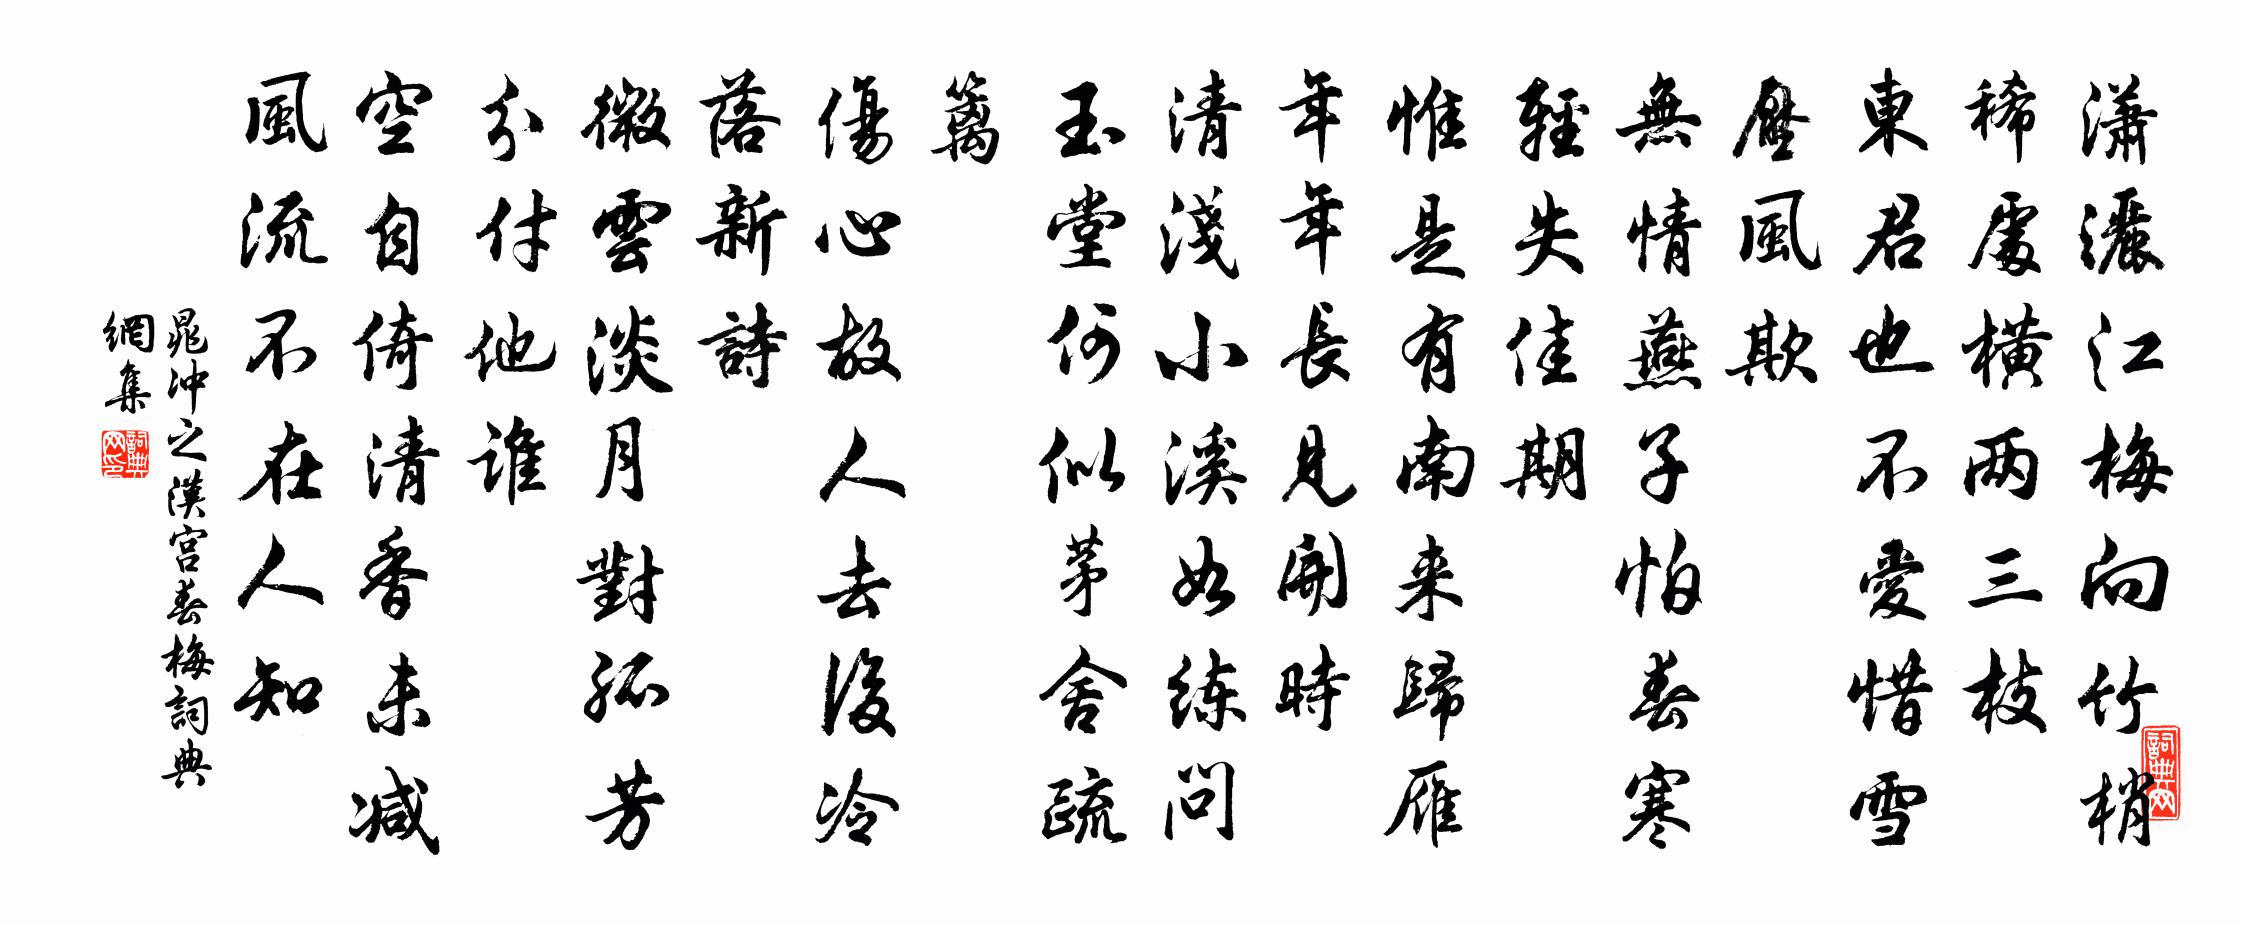 瀟灑江梅向竹梢
稀處橫两三枝
東君也不愛惜雪
壓風欺
無情燕子怕春寒
輕失佳期
惟是有南来歸雁
年年長見開時
清淺小溪如练問
玉堂何似茅舍疏
篱
傷心故人去後冷
落新詩
微雲淡月對孤芳
分付他谁
空自倚清香未减
風流不在人知
晁冲之漢宮春梅詞典
網集
詞典网
詞典网印